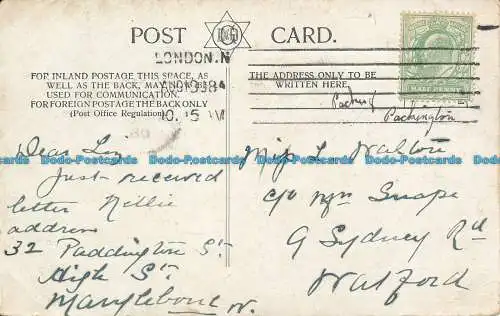 POST CARD.
LONDON.N
FOR INLAND POSTAGE THIS SPACE, AS
WELL AS THE BACK, MAY BE
USED FOR COMMUNICATION.
FOR FOREIGN POSTAGE THE BACK ONLY
(Post Office Regulation)
THE ADDRESS ONLY TO BE
WRITTEN HERE.
HALF PENNY
Packington
Dear Liz
Just received
letter Nellie
address
32 Paddington St.
High St.
Marylebone W.
Miss L Walton
c/o Mrs Snape
9 Sydney Rd
Watford
Dodo-Postcards Dodo-Postcards Dodo-Postcards Dodo-Postcards Dodo-Postcards